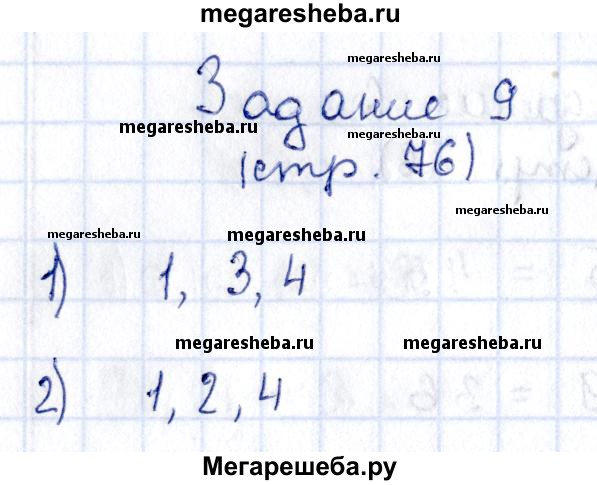 megaresheba.ru
megaresheba.ru
Задание 9
megaresheba.ru megaresheba.ru
(стр. 76)
megaresheba.ru
megaresheba.ru megaresheba.ru
1) 1, 3, 4
megaresheba.ru megaresheba.ru
2) 1, 2, 4
Мегарешеба.ру